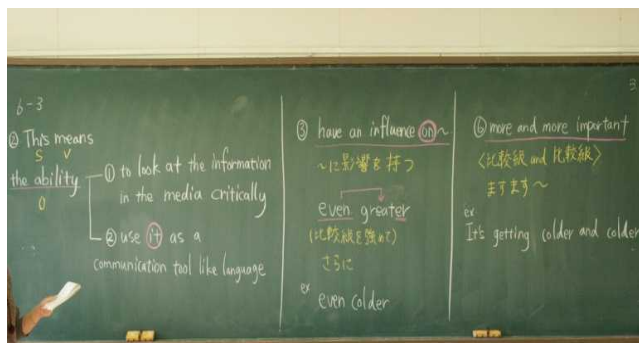 6-3
② This means
S V
the ability
O
① to look at the information
in the media critically
② use it as a
communication tool like language
③ have an influence on ~
~に影響を持つ
even greater
(比較級を強めて)
さらに
ex
even colder
⑥ more and more important
〈比較級 and 比較級〉
ますます~
ex
It's getting colder and colder
3